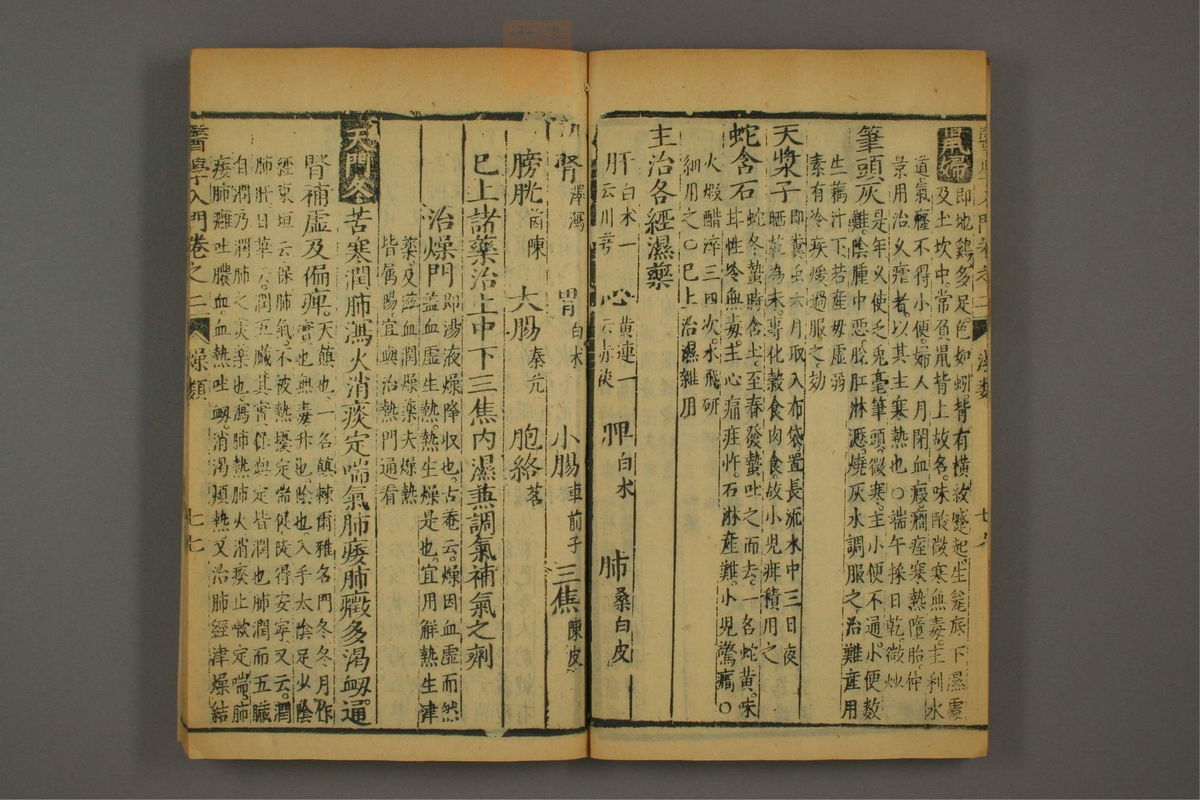 鼠婦
即地鷄多足色如蚓背有橫紋蹙起生瓮底下濕處
及土坎中常負鼠背上故名味酸微寒無毒主利水
道氣癃不得小便婦人月閉血瘕癇痓寒熱墮胎仲
景用治久瘧者以其主寒熱也〇端午採日乾微炒
筆頭灰
是年久使乏兎毫筆頭微寒主小便不通小便數
難陰腫中惡脫肛淋瀝燒灰水調服之治難産用
生藕汁下若産母虛弱
素有冷疾煖過服之効
天漿子
即糞虫六月取入布袋置長流水中三日夜
晒乾為末専化穀食肉食故小児疳積用之
蛇含石
蛇冬蟄時含土至春發蟄吐之而去一名蛇黃味
甘性冷無毒主心痛疰忤石淋産難小児驚癇〇
火煆醋淬三四次水飛研
細用之〇已上治濕雜用
主治各經濕藥
肝 白术一云川芎 心 黃連一云赤茯 脾 白术 肺 桑白皮
腎 澤瀉 胃 白术 小腸 車前子 三焦 陳皮
膀胱 茵陳 大腸 秦艽 胞絡 茗
已上諸藥治上中下三焦内濕兼調氣補氣之劑
治燥門
即湯液燥降收也古菴云燥因血虛而然
蓋血虛生熱熱生燥是也宜用解熱生津
藥及滋血潤燥藥夫燥熱
皆属陽宜與治熱門通看
天門冬
苦寒潤肺瀉火消痰定喘氣肺痿肺癥多渴衂通
腎補虛及偏痺
天顛也一名顛棘爾雅名門冬冬月作
實也無毒升也陰也入手太陰足少陰
經東垣云保肺氣不被熱擾定喘促陡得安寜又云潤
肺肝日華云潤五臟其實保與定皆潤也肺潤而五臟
自潤乃潤肺之劑也瀉肺熱肺火消痰止嗽定喘肺
痿肺癰吐膿血血熱吐衂消渴煩熱又治肺經津燥結
醫學入門卷之二 燥類 七七